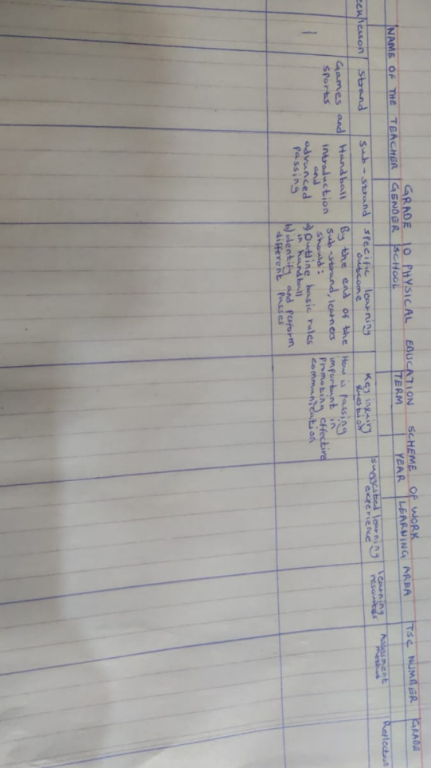 GRADE 10 PHYSICAL EDUCATION SCHEME OF WORK
NAME OF THE TEACHER GENDER SCHOOL TERM YEAR LEARNING AREA TSC NUMBER GRADE
lesson Strand Sub-strand Specific learning outcome Key inquiry question Suggested learning experience Learning resources Assessment Reflection
1
Games and
sports
Handball
Introduction
and
advanced
passing
By the end of the
sub-strand, learners
should:
a) Outline basic rules
in handball
b) Identify and perform
different passes
How is passing
important in
promoting effective
communication